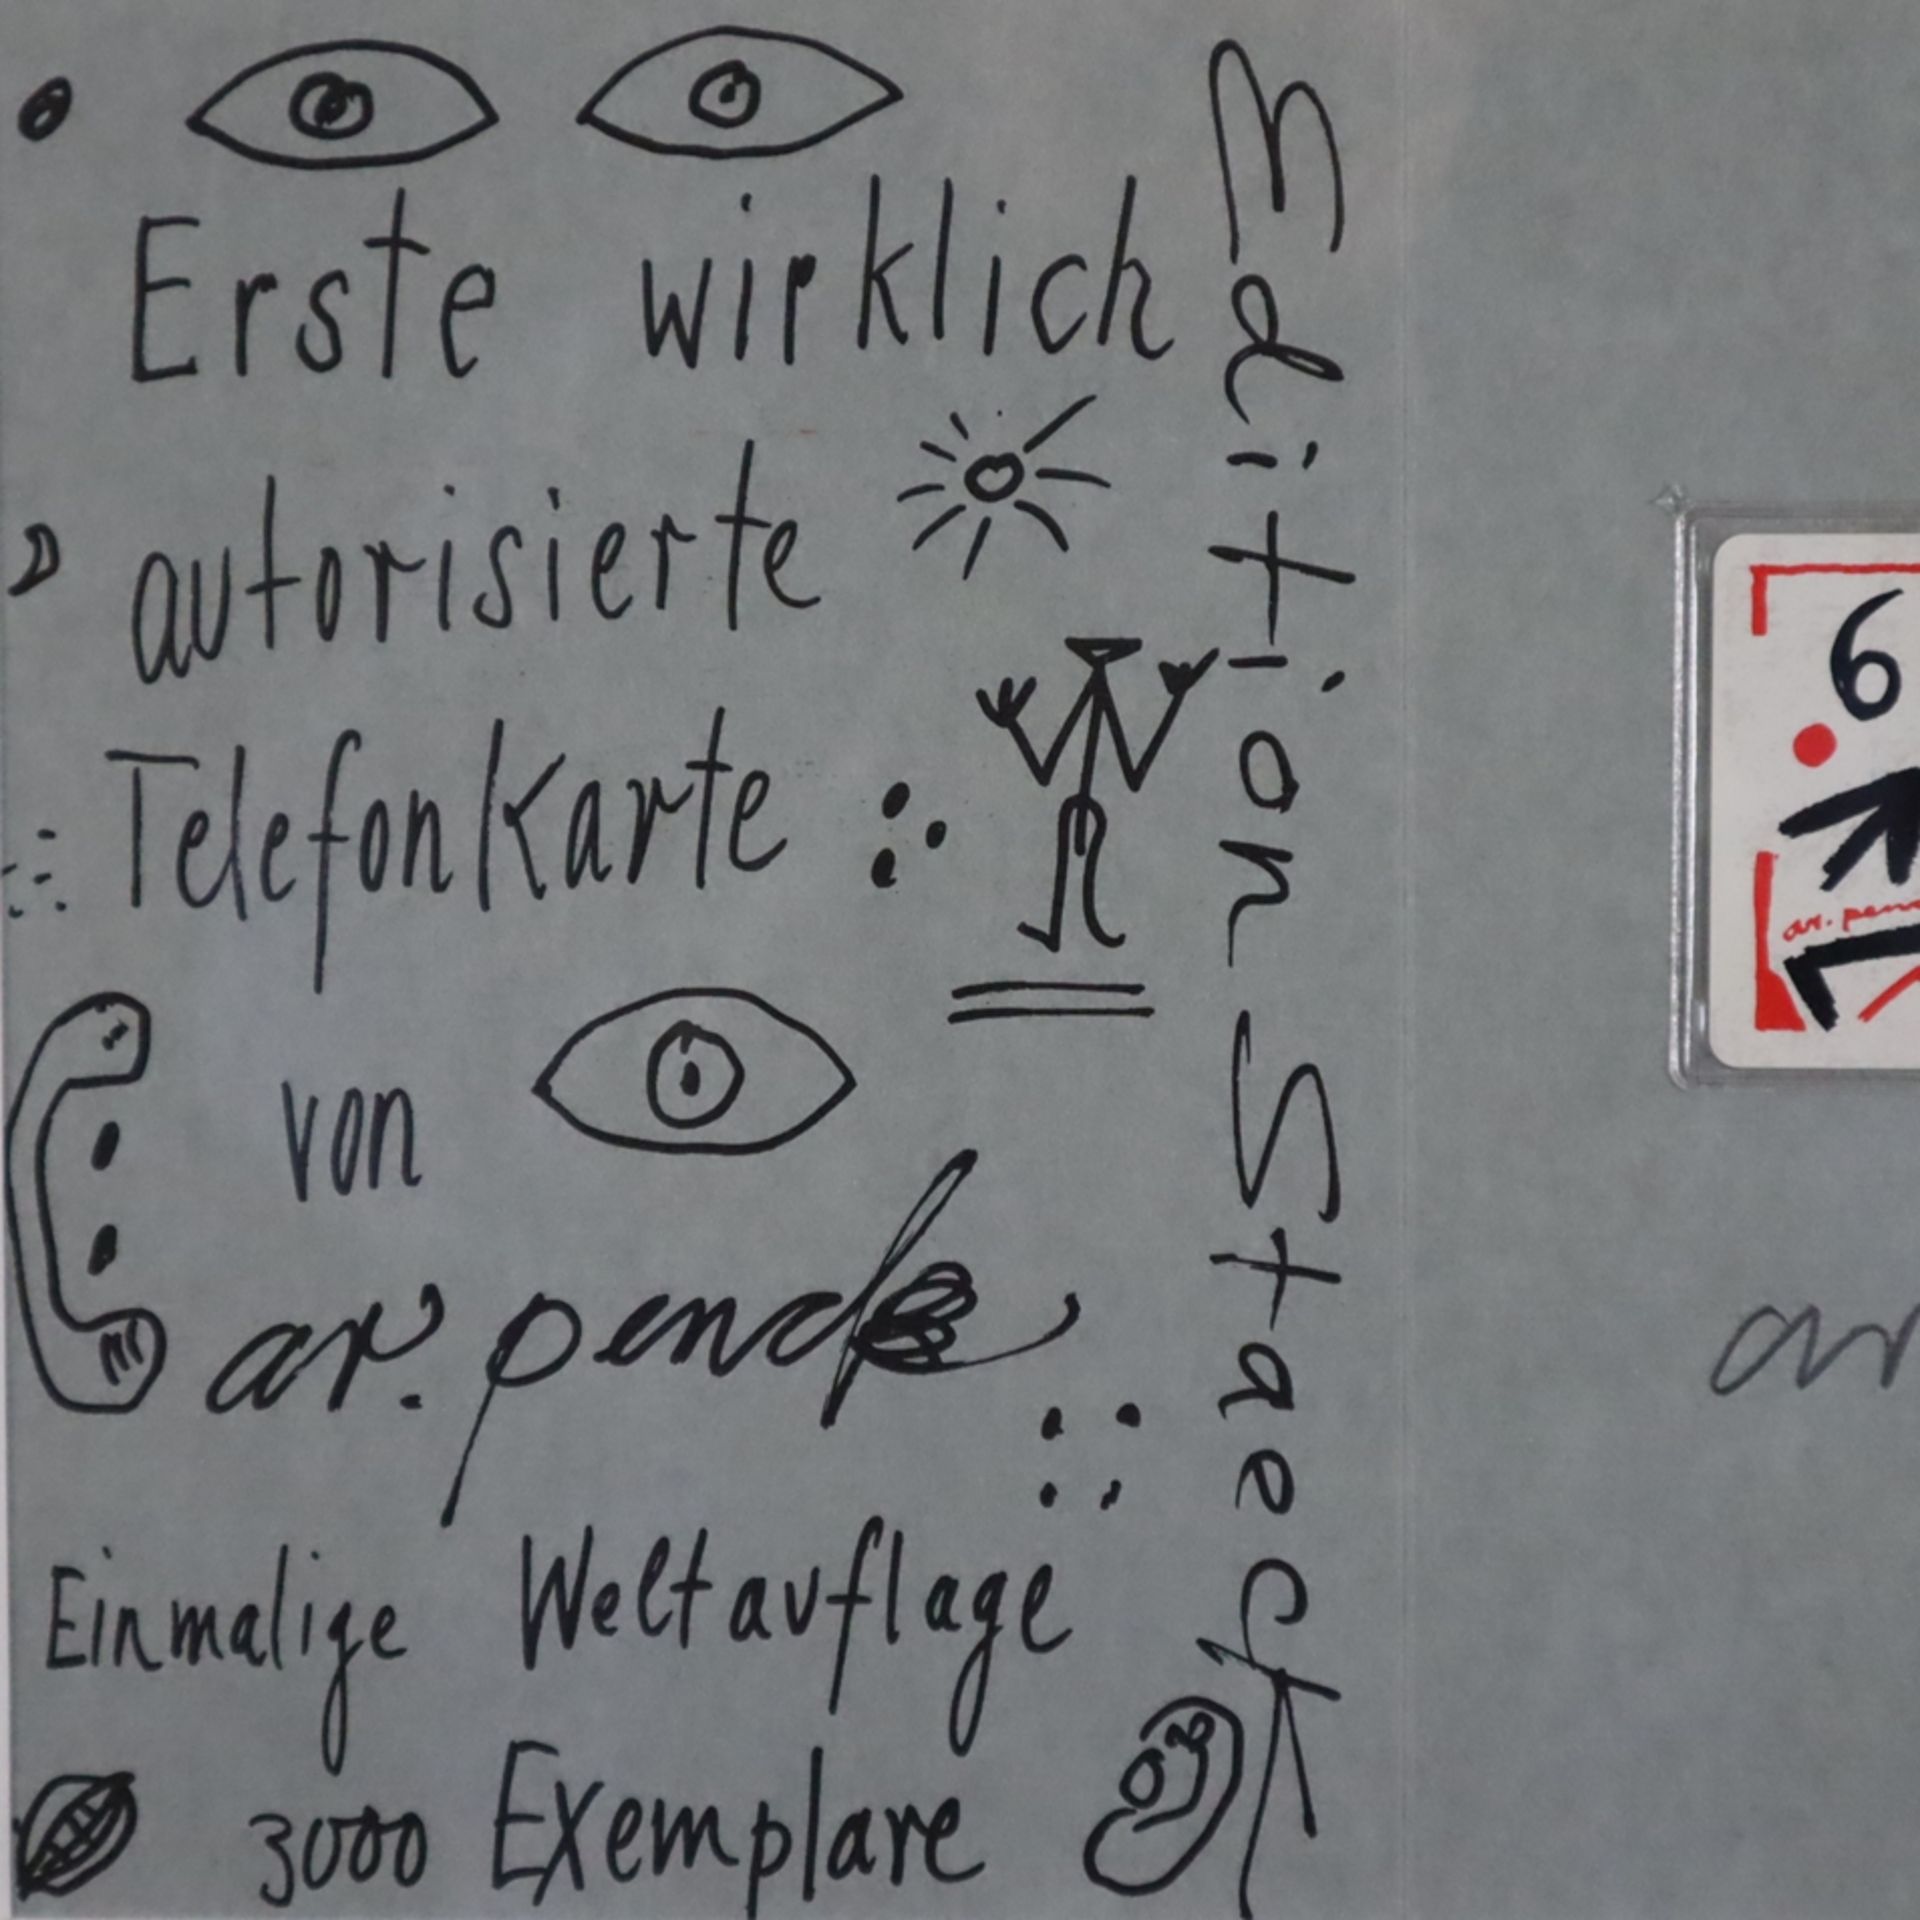 Erste wirklich
autorisierte
Telefonkarte
von
ar. penck
Einmalige Weltauflage
3000 Exemplare
Edition Staeck
6
ar. penc
ar